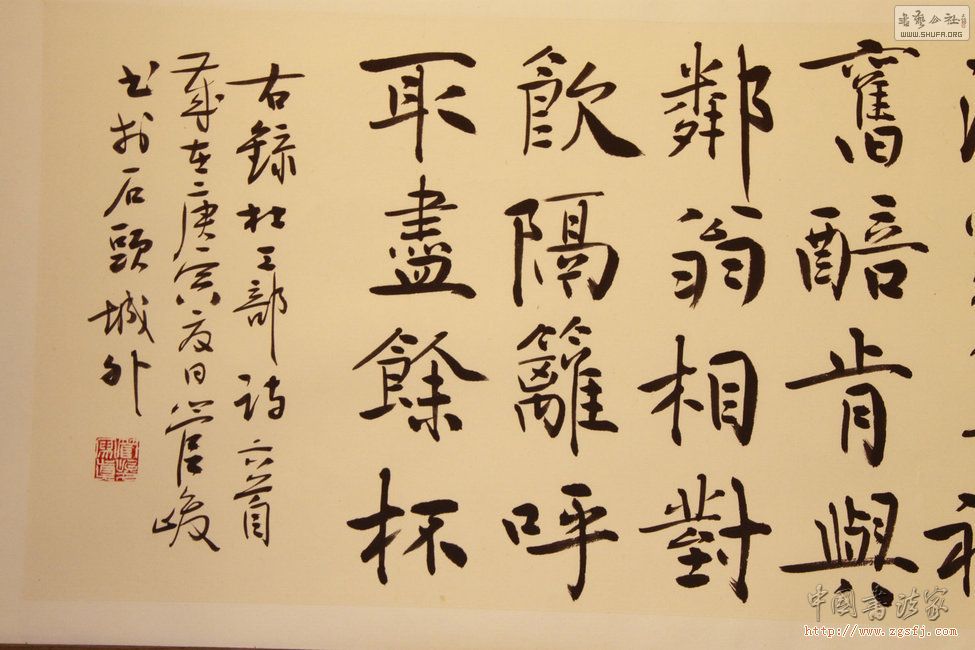 舊醅肯與
鄰翁相對
飲隔籬呼
取盡餘杯
右錄杜工部詩六首
歲在庚寅夏日管峻
书於石頭城外
书艺公社
WWW.SHUFA.ORG
中国書法家
http://www.zgsfj.com